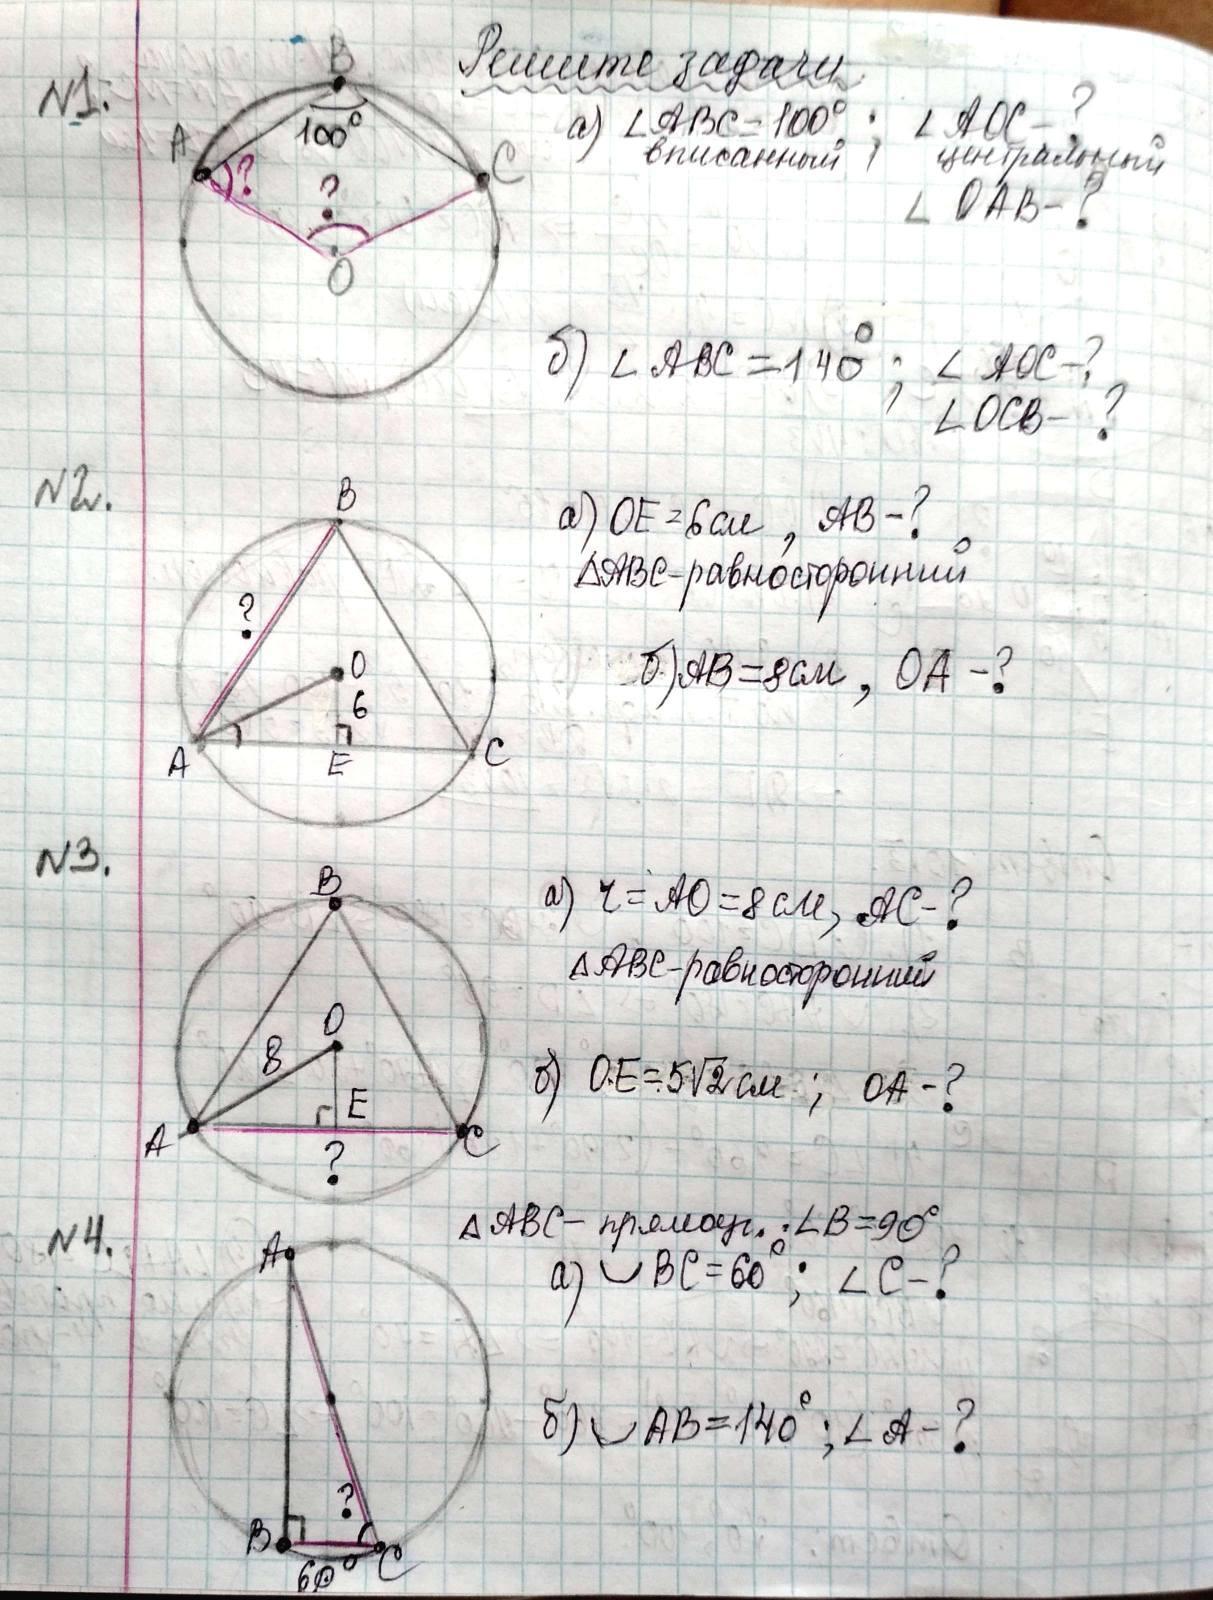 Решите задачи
N1.
B
A
C
100°
?
?
O
а) ∠ABC=100° ; ∠AOC-?
вписанный ; центральный
∠OAB-?
б) ∠ABC=140° ; ∠AOC-?
∠OCB-?
N2.
B
?
O
6
A
E
C
а) OE=6см, AB-?
△ABC-равносторонний
б) AB=8см, OA-?
N3.
B
O
8
E
A
C
?
а) r=AO=8см, AC-?
△ABC-равносторонний
б) OE=5√2см ; OA-?
N4.
A
?
B
C
60°
△ABC- прямоуг.: ∠B=90°
а) ◡BC=60° ; ∠C-?
б) ◡AB=140° ; ∠A-?